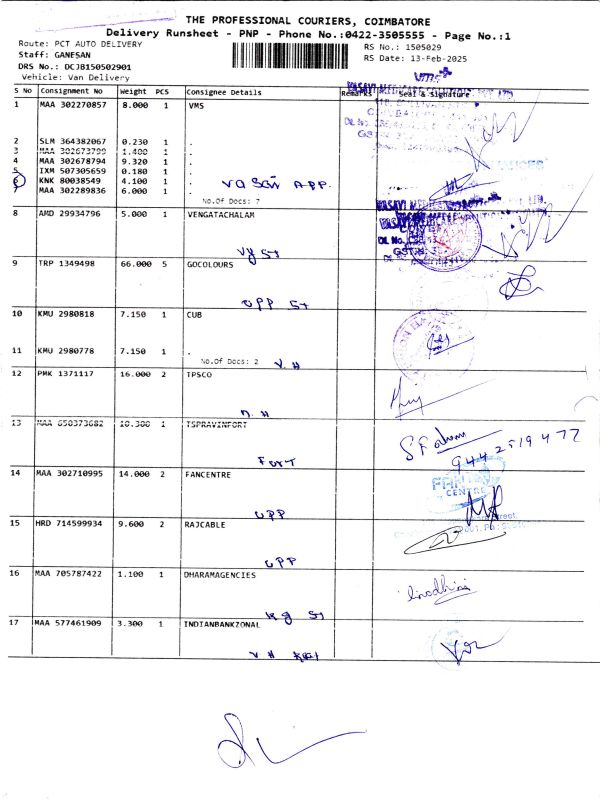 THE PROFESSIONAL COURIERS, COIMBATORE
Delivery Runsheet - PNP - Phone No.:0422-3505555 - Page No.:1
Route: PCT AUTO DELIVERY
RS No.: 1505029
Staff: GANESAN
RS Date: 13-Feb-2025
DRS No.: DCJB150502901
Vehicle: Van Delivery
S No Consignment No Weight PCS Consignee Details Remarks Seal & Signature
1 MAA 302270857 8.000 1 VMS
2 SLM 364382067 0.230 1 .
3 MAA 302673799 1.400 1 .
4 MAA 302678794 9.320 1 .
5 IXM 507305659 0.180 1 .
6 KNK 80038549 4.100 1 .
7 MAA 302289836 6.000 1 .
No.Of Docs: 7
8 AMD 29934796 5.000 1 VENGATACHALAM
Vy St
9 TRP 1349498 66.000 5 GOCOLOURS
OPP St
10 KMU 2980818 7.150 1 CUB
11 KMU 2980778 7.150 1 .
No.Of Docs: 2 V.H
12 PMK 1371117 16.000 2 TPSCO
13 MAA 650373682 10.300 1 TSPRAVINFORT
9442519477
Fort
14 MAA 302710995 14.000 2 FANCENTRE
CENTRE
OPP
15 HRD 714599934 9.600 2 RAJCABLE
OPP
16 MAA 705787422 1.100 1 DHARAMAGENCIES
Kg St
17 MAA 577461909 3.300 1 INDIANBANKZONAL